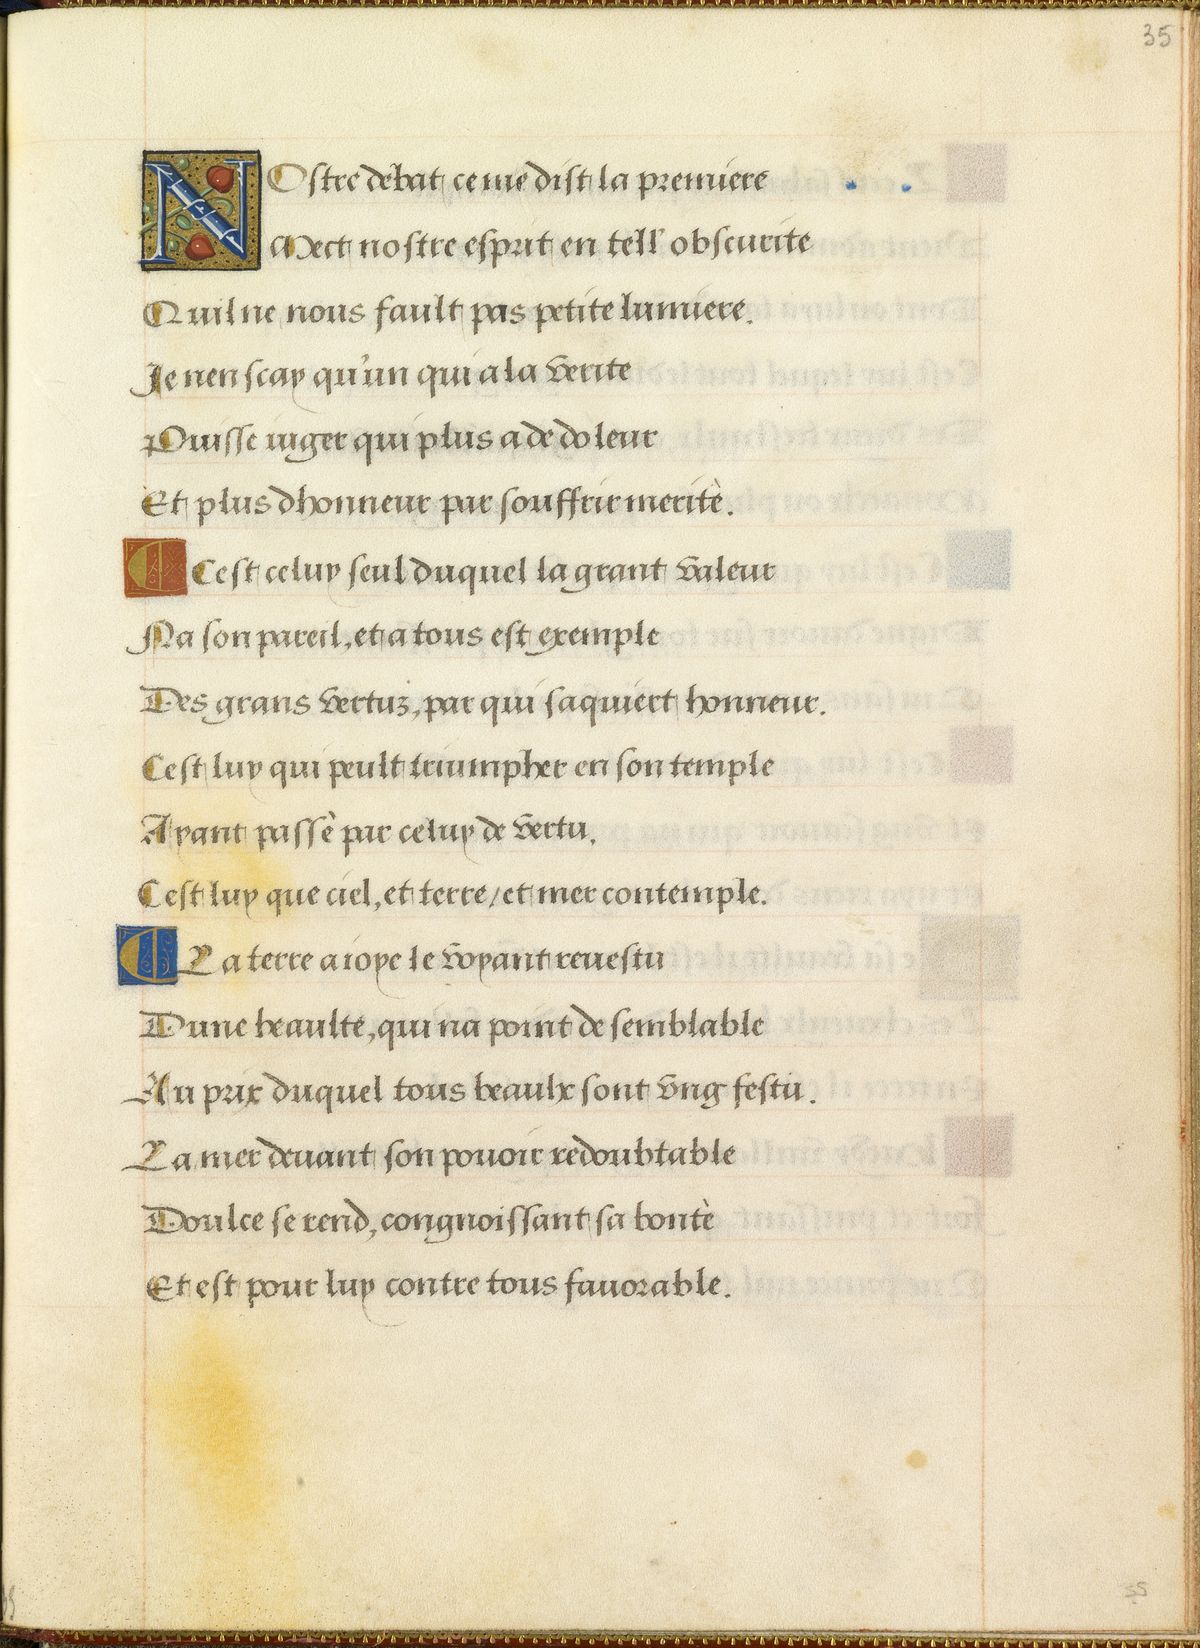 35
NOstre debat, ce me dist la premiere
Mect nostre esprit en tell' obscurite
Quil ne nous fault pas petite lumiere.
Je nen scay qu'un qui a la verite
Puisse iuger qui plus a de doleur
Et plus dhonneur par souffrir merite.
Cest celuy seul duquel la grant valeur
Na son pareil, et a tous est exemple
Des grans vertuz, par qui saquiert honneur.
Cest luy qui peult triumpher en son temple
Ayant passè par celuy de vertu.
Cest luy que ciel, et terre/ et mer contemple.
La terre a ioye le voyant reuestu
Dune beaulte, qui na point de semblable
Au prix duquel tous beaulx sont vng festu.
La mer deuant son pouoir redoubtable
Doulce se rend, congnoissant sa bontè
Et est pour luy contre tous fauorable.